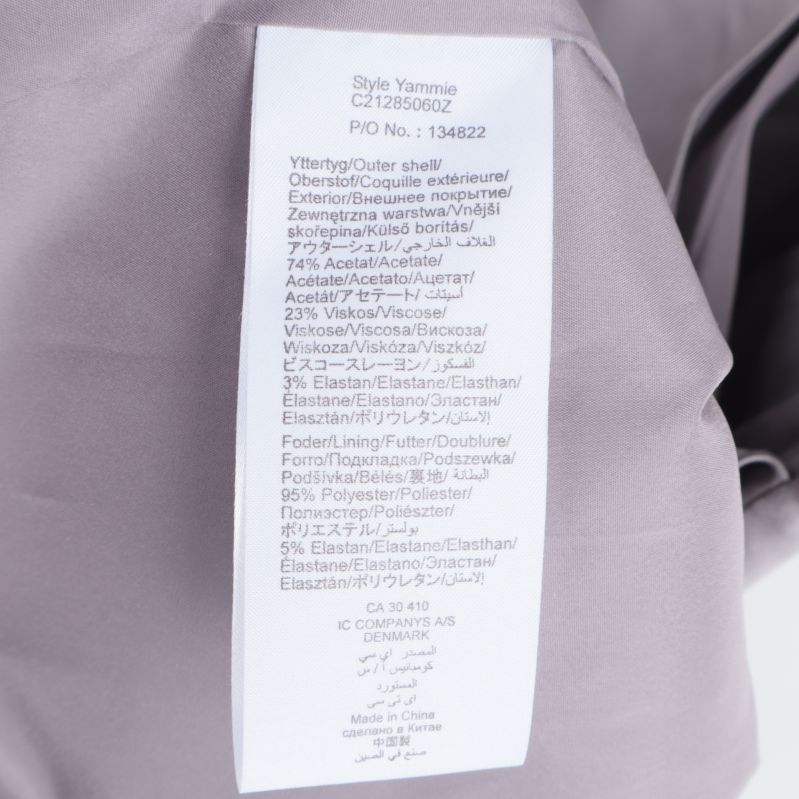 Style Yammie
C21285060Z
P/O No. : 134822
Yttertyg/Outer shell/
Oberstof/Coquille extérieure/
Exterior/Внешнее покрытие/
Zewnętrzna warstwa/Vnější
skořepina/Külső borítás/
アウターシェル/الغلاف الخارجي/
74% Acetat/Acetate/
Acétate/Acetato/Ацетат/
Acetát/アセテート/أسيتات
23% Viskos/Viscose/
Viskose/Viscosa/Вискоза/
Wiskoza/Viskóza/Viszkóz/
ビスコースレーヨン/الفسكوز/
3% Elastan/Elastane/Elasthan/
Élastane/Elastano/Эластан/
Elasztán/ポリウレタン/الاستان/
Foder/Lining/Futter/Doublure/
Forro/Подкладка/Podszewka/
Podšívka/Bélés/裏地/البطانة/
95% Polyester/Poliester/
Полиэстер/Poliészter/
ポリエステル/بولستر/
5% Elastan/Elastane/Elasthan/
Élastane/Elastano/Эластан/
Elasztán/ポリウレタン/الاستان/
CA 30 410
IC COMPANYS A/S
DENMARK
المصدر اي سي
كومبانيس أ / س
المستورد
اي تي سي
Made in China
сделано в Китае
中国製
صنع في الصين